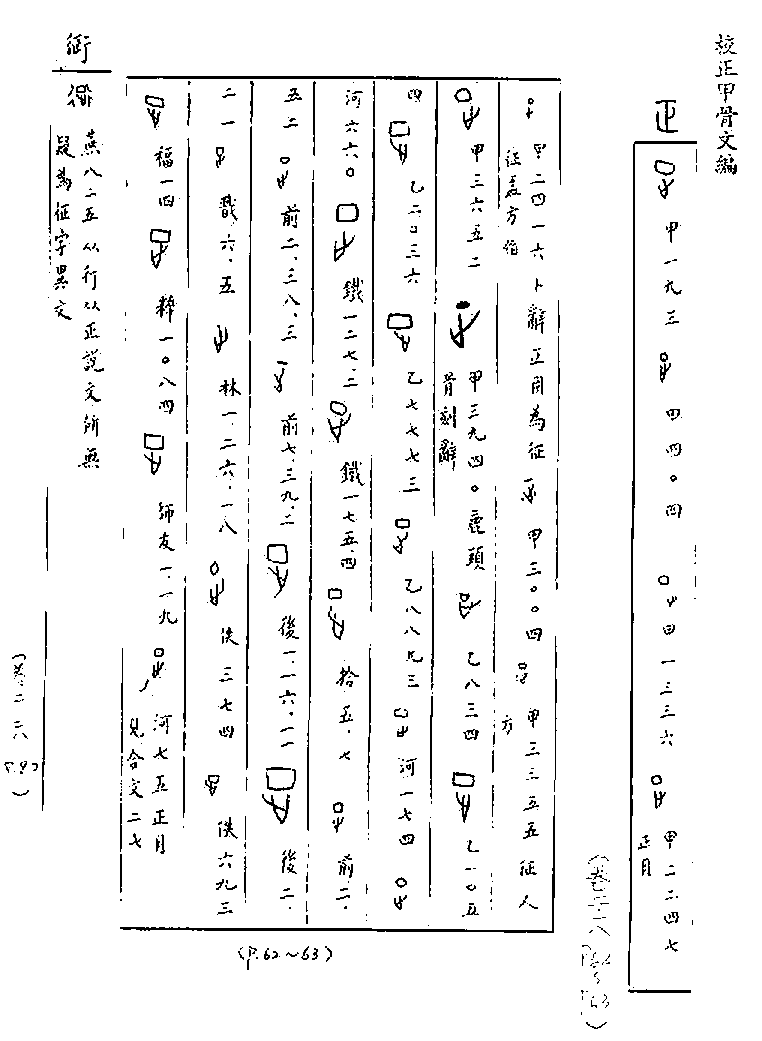 校正甲骨文編
正
甲一九三 甲四〇四 甲一三三六 甲二二四七
正月
(卷二·二八 P.62~P.63)
甲二四一六卜辭正用為征 甲三〇〇四 甲三三五五征人
征盂方伯
方
甲三六五二 甲三九四〇鹿頭 乙八三四 乙一〇五
骨刻辭
四 乙二〇三六 乙七七七三 乙八八九三 河一七四
河六六〇 鐵一二七.二 鐵一七五.四 拾五.七 前二.
五二 前二.三八.三 前七.三九.二 後一.一六.一一 後二.
二一 戩六.五 林一.二六.一八 佚三七四 佚六九三
福一四 粹一〇八四 師友一.一九 河七五正月
見合文二七
(P.62~63)
衍
燕八二五从行从正說文所無
疑為征字異文
(卷二·二八
P.93)